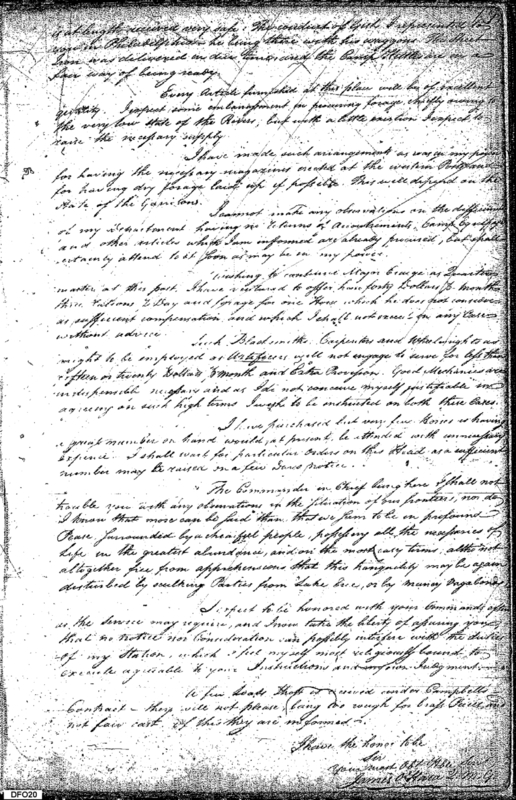 is at length received very safe. The conduct of
you in Philadelphia he being there with his waggons. The Sheet
Iron was delivered in due time, and the Camp Kettles are in a
fair way of being ready
Every Article furnished at this place will be of excellent
quality. I expect some embarrassment in procuring forage chiefly owing to
the very low state of the Rivers, but with a little exertion I expect to
raise the necessary supply
I have made such arrangements as was in my power
for having the necessary magazines erected at the western Posts, and
for having dry forage laid up if possible. This will depend on the
State of the Garrison.
I cannot make any observations on the deficiency
of my Department having no Returns of Accoutrements, Camp Equipage
and other articles which I am informed are already procured, but shall
certainly attend to it soon as may be in my power.
Wishing to continue Major Craig as Quarter
master at this post, I have ventured to offer him forty Dollars P. month
three Rations P Day and forage for one Horse which he does not consider
as sufficient compensation, and which I shall not exceed in any Case
without advice.
Such Blacksmiths, Carpenters and Wheelwrights as
might to be employed as Artificers will not engage to serve for less than
fifteen or twenty Dollars P month and Extra Provision. Good Mechanics are
indispensible necessary and as I do not conceive myself justifiable in
agreeing on such high terms I wish to be instructed on both these Cases.
I have purchased but very few Horses as having
a great number on hand would, at present, be attended with unnecessary
expence. I shall wait for particular orders on this Head as a sufficient
number may be raised on a few days notice.
The Commander in Chief being here I shall not
trouble you with any observations on the situation of our frontiers, nor do
I know that more can be said than that we seem to be in profound
Peace, surrounded by a chearful people, possessing all the necessaries of
Life in the greatest abundance, and on the most easy terms; altho not
altogether free from apprehensions that this tranquility may be again
disturbed by sculking Parties from Lake Erie, or by Muncy Vagabonds
I expect to be honored with your Commands often
as the Service may require, and I now take the liberty of assuring you
that no notice nor Consideration can possibly interfere with the duties
of my Station, which I feel myself most religiously bound to
execute agreeable to your Instructions and my own Judgment.
A few loads Shott is received under Campbells
Contract - they will not please, being too rough for brass Pieces, and
not fair cast. Of this they are informed.
I have the honor to be
Sir
Your most Obt. Hble. Servt.
James O'Hara Q.M.G.
DFO20